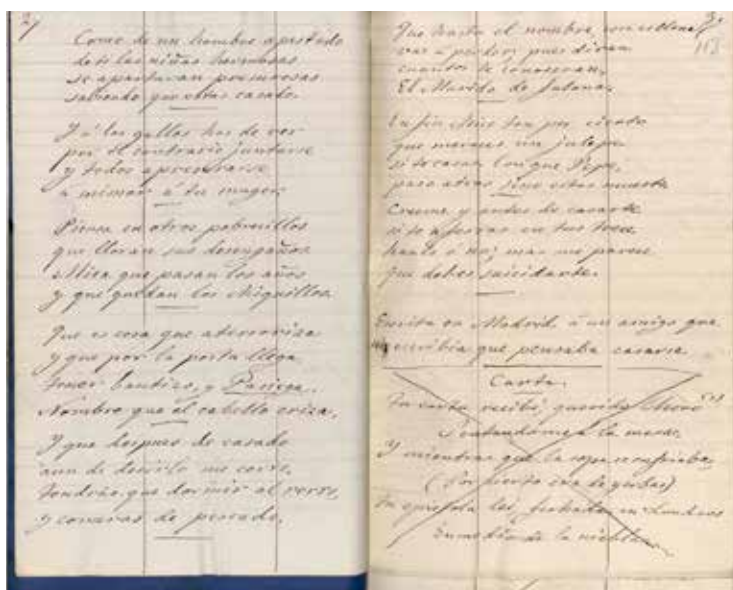 27
Como de un hombre apestado
de ti las niñas hermosas
se apartaran presurosas
sabiendo que estas casado.
Y á los gallos has de ver
por el contrario juntarse
y todos apresurarse
a mimar á tu muger.
Piensa en otros pobrecillos
que lloran sus desengaños
Mira que pasan los años
y que quedan los chiquillos
Que es cosa que aterroriza
y que por la posta llega
tener bautizo, y Pasiega.
Nombre que el cabello eriza.
Y que despues de casado
aun de decirlo me corro,
tendrás que dormir al
y comeras de pescado.
Que hasta el nombre,
vas a perder; pues diran
cuantos te conoceran,
El Marido de Fulana.
113
En fin ten por cierto
que mereces un julepe
si te casas con que Pepe,
paso atras sino estas muerto
Creeme y antes de casarte
si te aferras en tus trece
harás ó no; mas me parece
que debes suicidarte.
Escrita en Madrid á un amigo que
me escribia que pensaba casarse
Carta.
Tu carta recibí, querido
Sentandome á la mesa,
Y mientras que la sopa se enfriaba,
(Por cierto era de yerbas)
Tu epistola lei, fechada en Londres
En medio de la niebla.